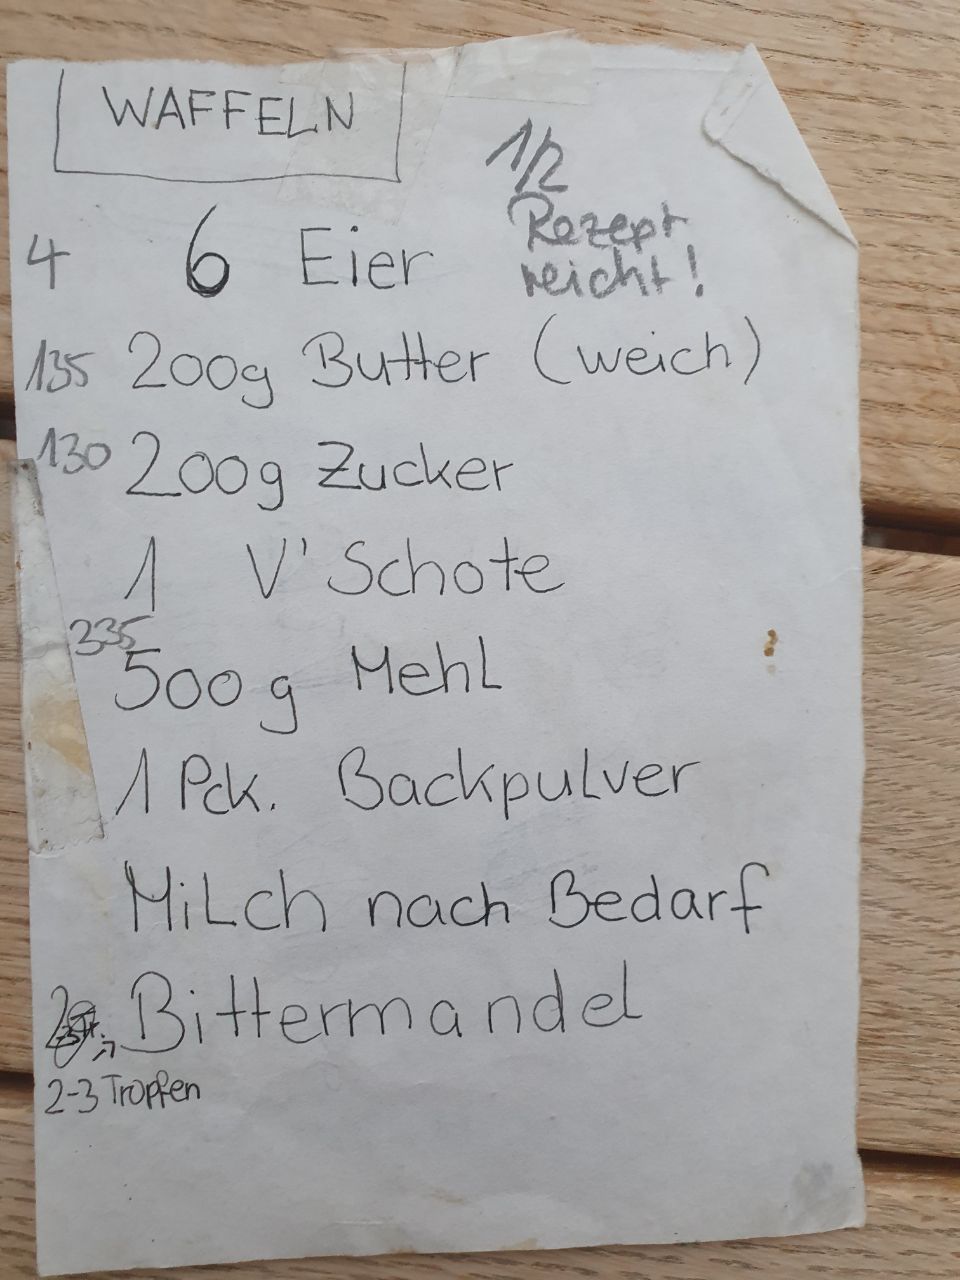 WAFFELN
1/2
Rezept
reicht!
4 6 Eier
135 200g Butter (weich)
130 200g Zucker
1 V'Schote
335
500g Mehl
1 Pck. Backpulver
Milch nach Bedarf
Bittermandel
2-3 Tropfen